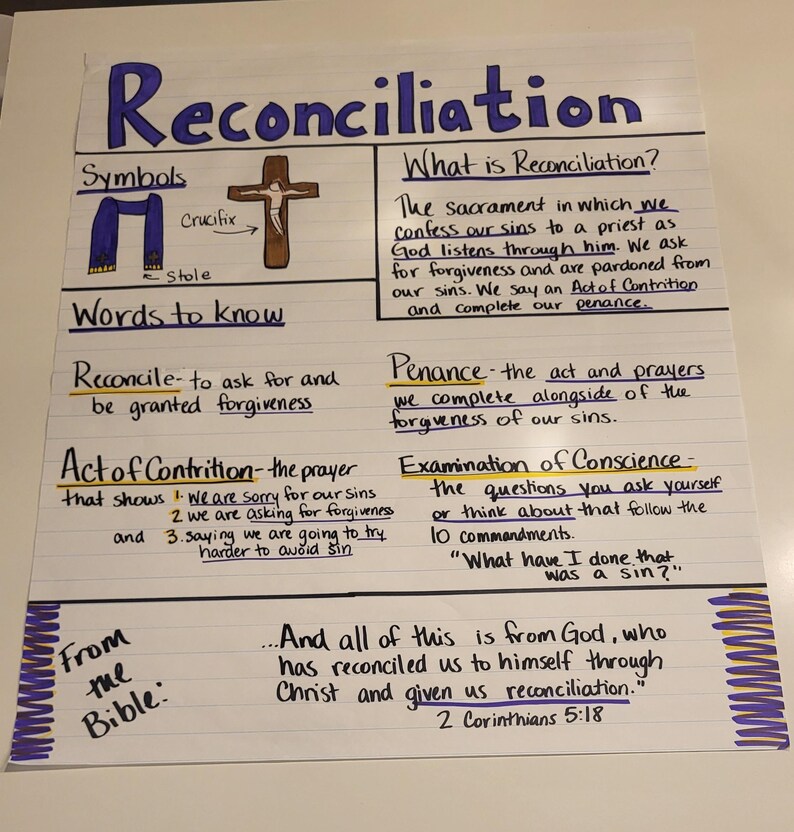 Reconciliation
Symbols
Crucifix
Stole
What is Reconciliation?
The sacrament in which we
confess our sins to a priest as
God listens through him. We ask
for forgiveness and are pardoned from
our sins. We say an Act of Contrition
and complete our penance.
Words to know
Reconcile- to ask for and
be granted forgiveness
Penance - the act and prayers
we complete alongside of the
forgiveness of our sins.
Act of Contrition - the prayer
that shows 1. we are sorry for our sins
2 we are asking for forgiveness
and 3. saying we are going to try
harder to avoid sin
Examination of Conscience -
the questions you ask yourself
or think about that follow the
10 commandments.
"What have I done that
was a sin?"
From
the
Bible:
...And all of this is from God, who
has reconciled us to himself through
Christ and given us reconciliation."
2 Corinthians 5:18